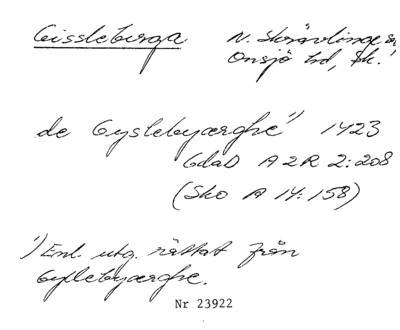 Gissleberga N. Skrävlinge sn
Onsjö hd, Sk.
de Gyslebyærghe 1) 1423
GdaD A 2 R 2:208
(Sko A 14:158)
1) Enl. utg. rättat från
Gyllebyærghe.
Nr 23922